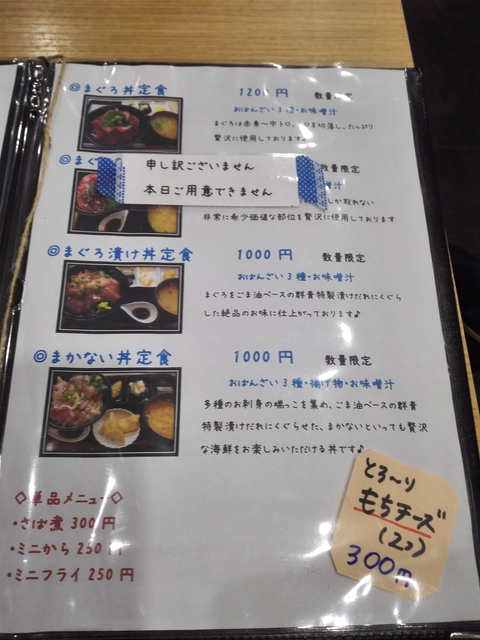 ◎まぐろ丼定食 1200円 数量限定
おばんざい3種・お味噌汁
まぐろは赤身～中トロ、
を切落し、たっぷり
贅沢に使用しております♪
◎まぐ
数量限定
申し訳ございません
本日ご用意できません
味噌汁
しか取れない
非常に希少価値な部位を贅沢に使用しております
◎まぐろ漬け丼定食 1000円 数量限定
おばんざい3種・お味噌汁
まぐろをごま油ベースの群青特製漬けだれにくぐら
した絶品のお味に仕上がっております♪
◎まかない丼定食 1000円 数量限定
おばんざい3種・揚げ物・お味噌汁
多種のお刺身の端っこを集め、ごま油ベースの群青
特製漬けだれにくぐらせた、まかないといっても贅沢
な海鮮をお楽しみいただける丼です♪
◇単品メニュー◇
・さば煮 300円
・ミニから 250円
・ミニフライ 250円
とろ～り
もちチーズ
(2コ)
300円